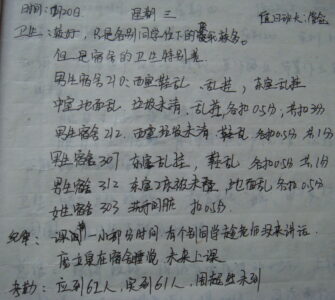 时间:10月20日 星期三 值日班长:
卫生:较好,只是各别同学位下的
但是宿舍的卫生特别差
男生宿舍210:西室鞋乱、乱挂,东室乱挂
中室地面乱 垃圾未清、乱挂各扣0.5分,共扣3分
男生宿舍212.西室垃圾未清 鞋乱 各扣0.5分 共1分
男生宿舍307 东室乱挂,鞋乱 各扣0.5分 共1分
男生宿舍312 东室2床被未叠,地面乱 各扣0.5分
女生宿舍303 扣0.5分
纪律:课间一小部分时间,有个别同学趁老师没来讲话
在宿舍睡觉,未来上课
考勤:应到62人,实到61人,未到